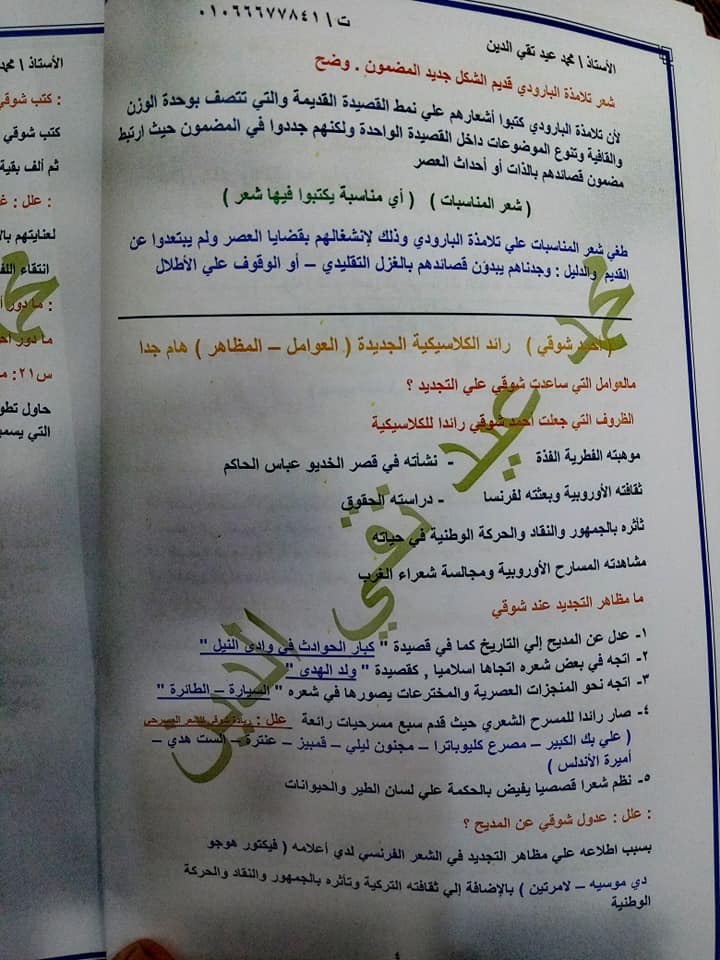 ت / ٠١٠٦٦٦٧٧٨٤١
الأستاذ / محمد عيد تقي الدين
شعر تلامذة البارودي قديم الشكل جديد المضمون . وضح
لأن تلامذة البارودي كتبوا أشعارهم علي نمط القصيدة القديمة والتي تتصف بوحدة الوزن
والقافية وتنوع الموضوعات داخل القصيدة الواحدة ولكنهم جددوا في المضمون حيث ارتبط
مضمون قصائدهم بالذات أو أحداث العصر
( شعر المناسبات ) ( أي مناسبة يكتبوا فيها شعر )
طفي شعر المناسبات علي تلامذة البارودي وذلك لإنشغالهم بقضايا العصر ولم يبتعدوا عن
القديم والدليل : وجدناهم يبدؤن قصائدهم بالغزل التقليدي – أو الوقوف علي الأطلال
( احمد شوقي ) رائد الكلاسيكية الجديدة ( العوامل – المظاهر ) هام جدا
مالعوامل التي ساعدت شوقي علي التجديد ؟
الظروف التي جعلت احمد شوقي رائدا للكلاسيكية
موهبته الفطرية الفذة - نشأته في قصر الخديو عباس الحاكم
ثقافته الأوروبية وبعثته لفرنسا - دراسته الحقوق
تأثره بالجمهور والنقاد والحركة الوطنية في حياته
مشاهدته المسارح الأوروبية ومجالسة شعراء الغرب
ما مظاهر التجديد عند شوقي
١- عدل عن المديح إلي التاريخ كما في قصيدة " كبار الحوادث في وادي النيل "
٢- اتجه في بعض شعره اتجاها اسلاميا , كقصيدة " ولد الهدى "
٣- اتجه نحو المنجزات العصرية والمخترعات يصورها في شعره " السيارة – الطائرة "
٤- صار رائدا للمسرح الشعري حيث قدم سبع مسرحيات رائعة علل : ريادة شوقي للشعر المسرحي
( علي بك الكبير – مصرع كليوباترا – مجنون ليلي – قمبيز – عنترة – الست هدي –
أميرة الأندلس )
٥- نظم شعرا قصصيا يفيض بالحكمة علي لسان الطير والحيوانات
: علل : عدول شوقي عن المديح ؟
بسبب اطلاعه علي مظاهر التجديد في الشعر الفرنسي لدي أعلامه ( فيكتور هوجو
دي موسيه – لامرتين ) بالإضافة إلي ثقافته التركية وتأثره بالجمهور والنقاد والحركة
الوطنية
محمد عيد تقي الدين
٤
الأستاذ / محمد
: كتب شوقي
كتب شوقي
ثم ألف بقية
: علل :
لعنايتهم
انتقاء
: ما دور
ما دور
س٢١:
حاول
التي